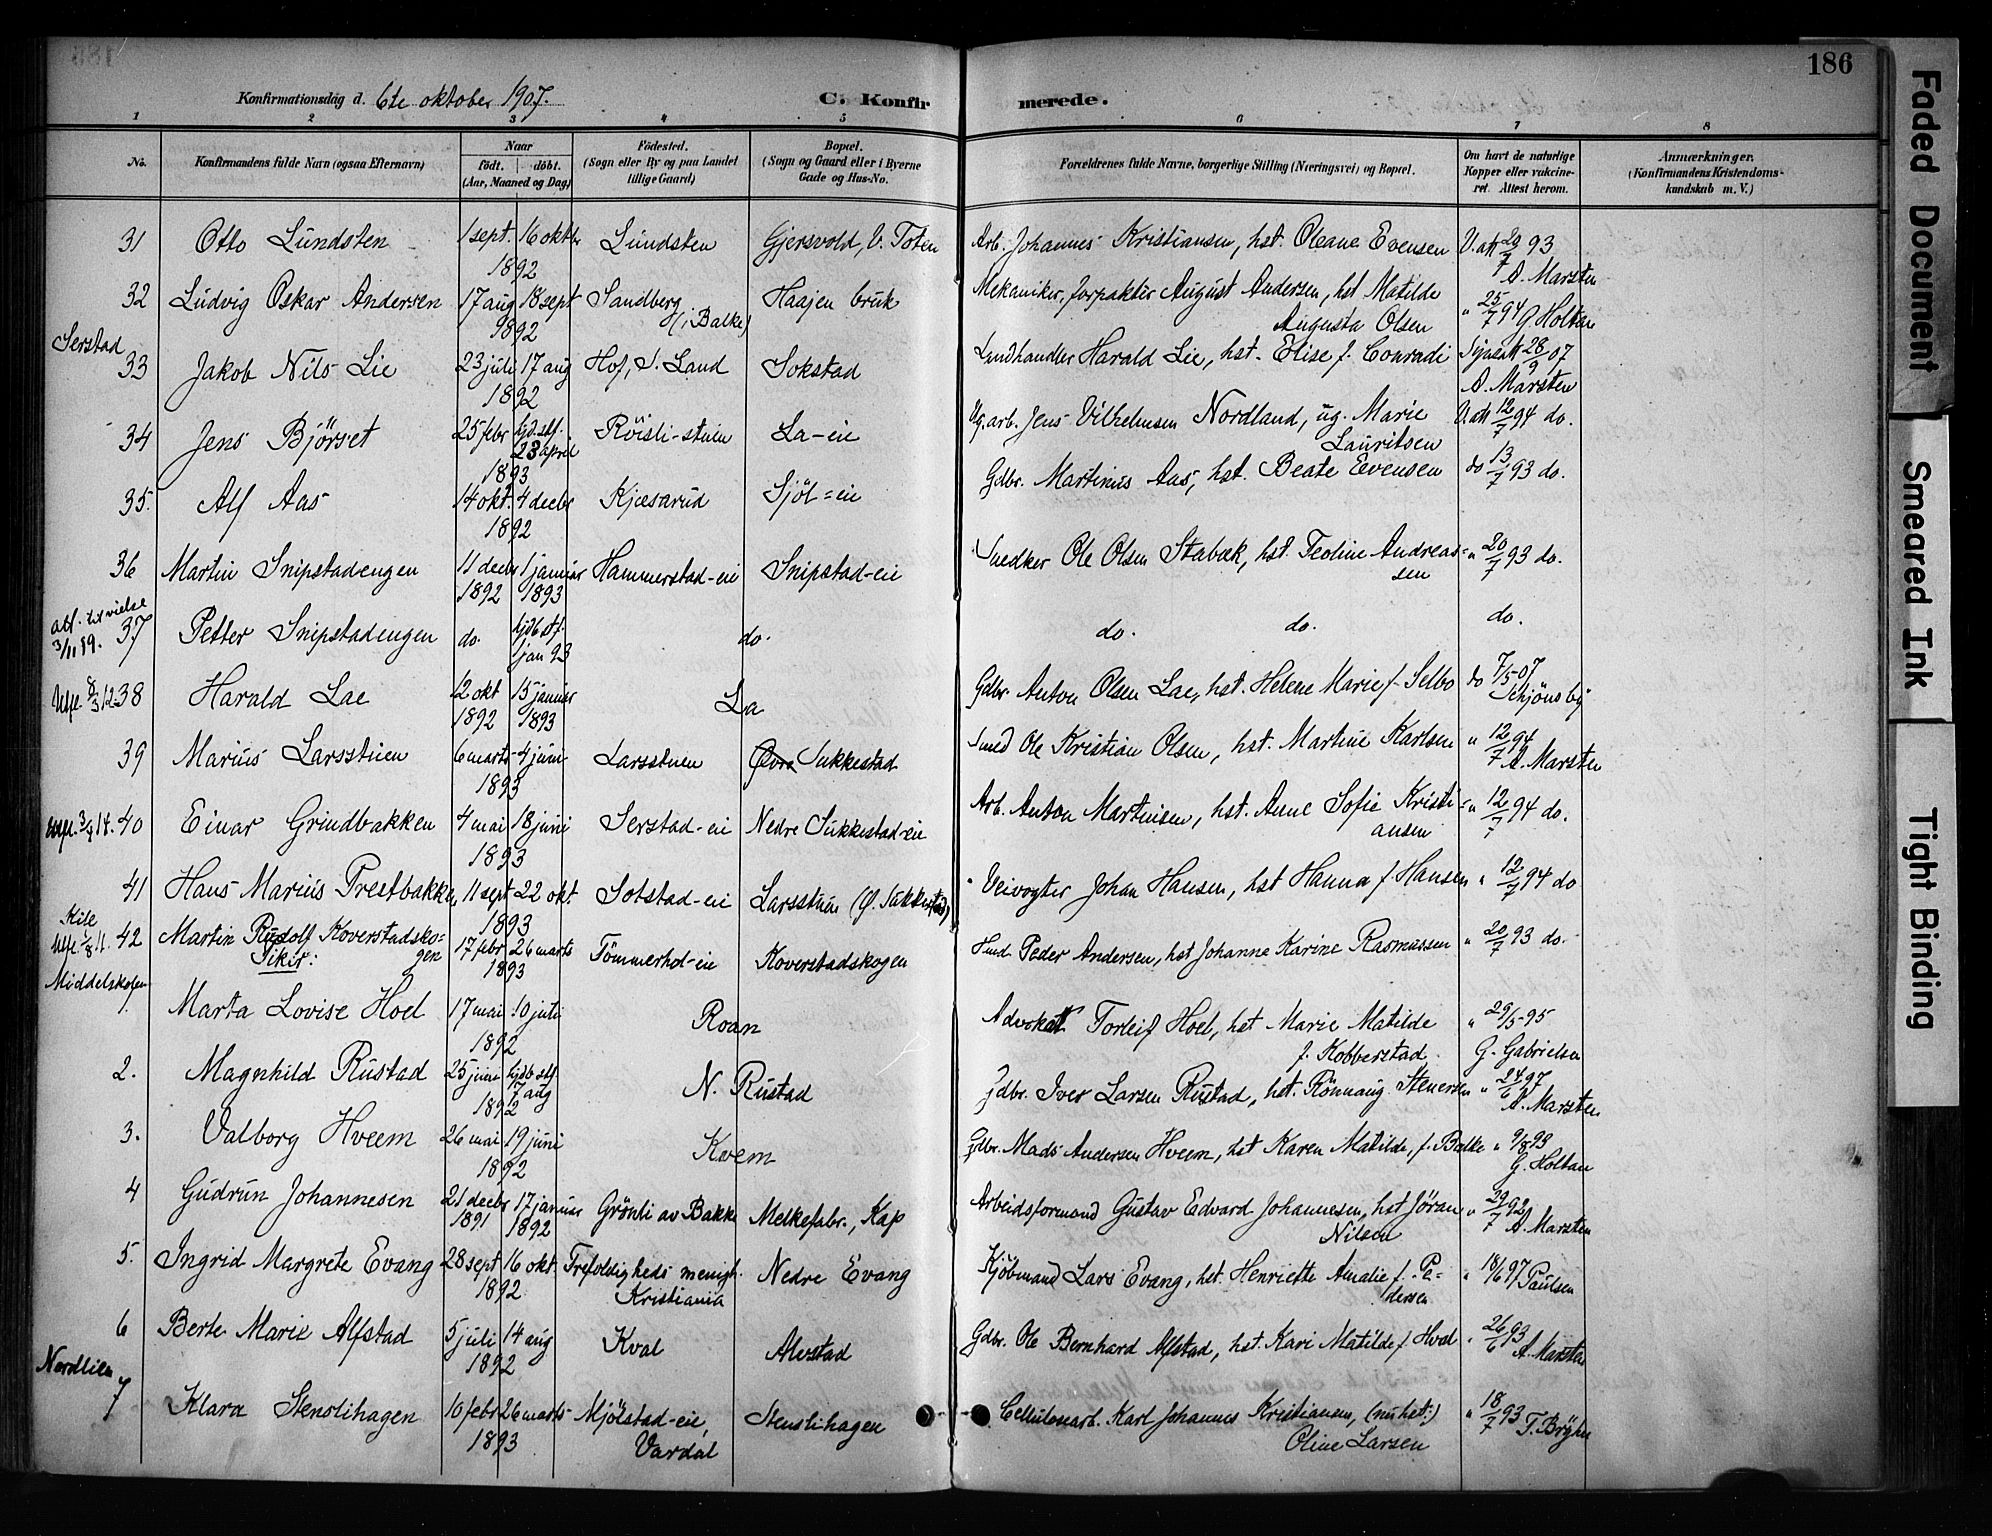 186
Konfirmationsdag d. 6te oktober 1907.
C. Konfirmerede.
1 2 3 4 5 6 7 8
No. Konfirmandens fulde Navn (ogsaa Efternavn) Naar födt. döbt. (Aar, Maaned og Dag) Födested. (Sogn eller By og paa Landet tillige Gaard) Bopæl. (Sogn og Gaard eller i Byerne Gade og Hus-No. Forældrenes fulde Navne, borgerlige Stilling (Næringsvei) og Bopæl. Om havt de naturlige Kopper eller vakcineret. Attest herom. Anmærkninger. (Konfirmandens Kristendomskundskab m. V.)
31 Otto Lundsten 1 sept. 16 oktbr 1892 Lundsten Gjersvold, V. Toten Arb. Johannes Kristiansen, hst. Oleane Evensen V. att 20/7 93 A. Marsten
32 Ludvig Oskar Andersen 17 aug 18 sept 1892 Sandberg (i Balke) Haajen bruk Mekaniker, forpakter August Andersen, hst Matilde Augusta Olsen " 25/7 94 G. Holtan
Serstad
33 Jakob Nils Lie 23 juli 17 aug 1892 Hof, S. Land Sokstad Landhandler Harald Lie, hst. Elise f. Conradi 28/9 07 A. Marsten
34 Jens Bjørset 25 febr hjd. stf. 23 april 1893 Röisli-stuen La-eie Ug. arb. Jens Vilhelmsen Nordland, ug. Marie Lauritsen V. att 12/7 94 do.
35. Alf Aas 14 okt. 4 decbr 1892 Kjæsarud Sjöl=eie Gdbr. Martinus Aas, hst. Beate Evensen do 13/7 93 do.
36 Martin Snipstadengen 11 decbr 1892 1 januar 1893 Hammerstad-eie Snipstad-eie Snedker Ole Olsen Stabæk, hst. Teoline Andreassen " 20/7 93 do.
att. til vielse 3/11 19. 37 Petter Snipstadengen do. hjdb stf. 1 jan 93 do. do. do. do.
Utfl. 8/3 12 38 Harald Lae 12 okt 1892 15 januar 1893 La Gdbr. Anton Olsen Lae, hst. Helene Marie f. Selbo do 7/5-07 Schjönsby
39 Marius Larsstuen 6 marts 4 juni 1893 Larsstuen Øvre Sukkestad Smed Ole Kristian Olsen, hst. Martine Karlsen " 12/7 94 A. Marsten
Utfl. 3/4 14. 40 Einar Grindbakken 4 mai 18 juni 1893 Serstad-eie Nedre Sukkestad-eie Arb. Anton Martinsen, hst. Anne Sofie Kristiansen " 12/7 94 do.
41 Hans Marius Prestbakken 11 sept 22 okt 1893 Sotstad-eie Larsstuen (Ø. Sukkestad) Veivogter Johan Hansen, hst Hanna f. Hansen " 12/7 94 do
Kile
Utfl. 1/8 11. 42 Martin Rudolf Koverstadskogen 17 febr 26 marts 1893 Tömmerhol-eie Koverstadskogen Smed Peder Andersen, hst Johanne Karine Rasmussen " 20/7 93 do.
Piker:
Middelskolen
1. Marta Lovise Hoel 17 mai 10 juli 1892 Roan Advokat Torleif Hoel, hst Marie Matilde f. Kobberstad " 29/5-95 G. Gabrielsen
2. Magnhild Rustad 25 juni hjdb stf 7 aug 1892 N. Rustad Gdbr. Iver Larsen Rustad, hst. Rönnaug Stenersen " 24/6 97 A. Marsten
3. Valborg Hveem 26 mai 19 juni 1892 Kvem Gdbr. Mads Andersen Hveem, hst Karen Matilde, f. Balke " 9/8 93 G. Holtan
4 Gudrun Johannesen 21 decbr 1891 17 januar 1892 Grönli av Bakke Melkefabr., Kap Arbeidsformand Gustav Edvard Johannesen, hst Jöran Nilsen " 29/7 92 A. Marsten
5. Ingrid Margrete Evang 28 sept 16 okt. 1892 Trefoldigheds menigh. Kristiania Nedre Evang Kjöbmand Lars Evang, hst. Henriette Amalie f. Pedersen " 18/6 97 Paulsen
6 Berte Marie Alfstad 5 juli 14 aug 1892 Kval Alvstad Gdbr. Ole Bernhard Alfstad, hst. Kari Matilde f. Hval " 26/6 93 A. Marsten
Nordlien
7 Klara Stenslihagen 10 febr 26 marts 1893 Mjölstad-eie, Vardal Stenslihagen Cellulosearb. Karl Johannes Kristiansen, (nu hst:) Oline Larsen " 18/7 93 T. Bryhn
Faded Document
Smeared Ink
Tight Binding